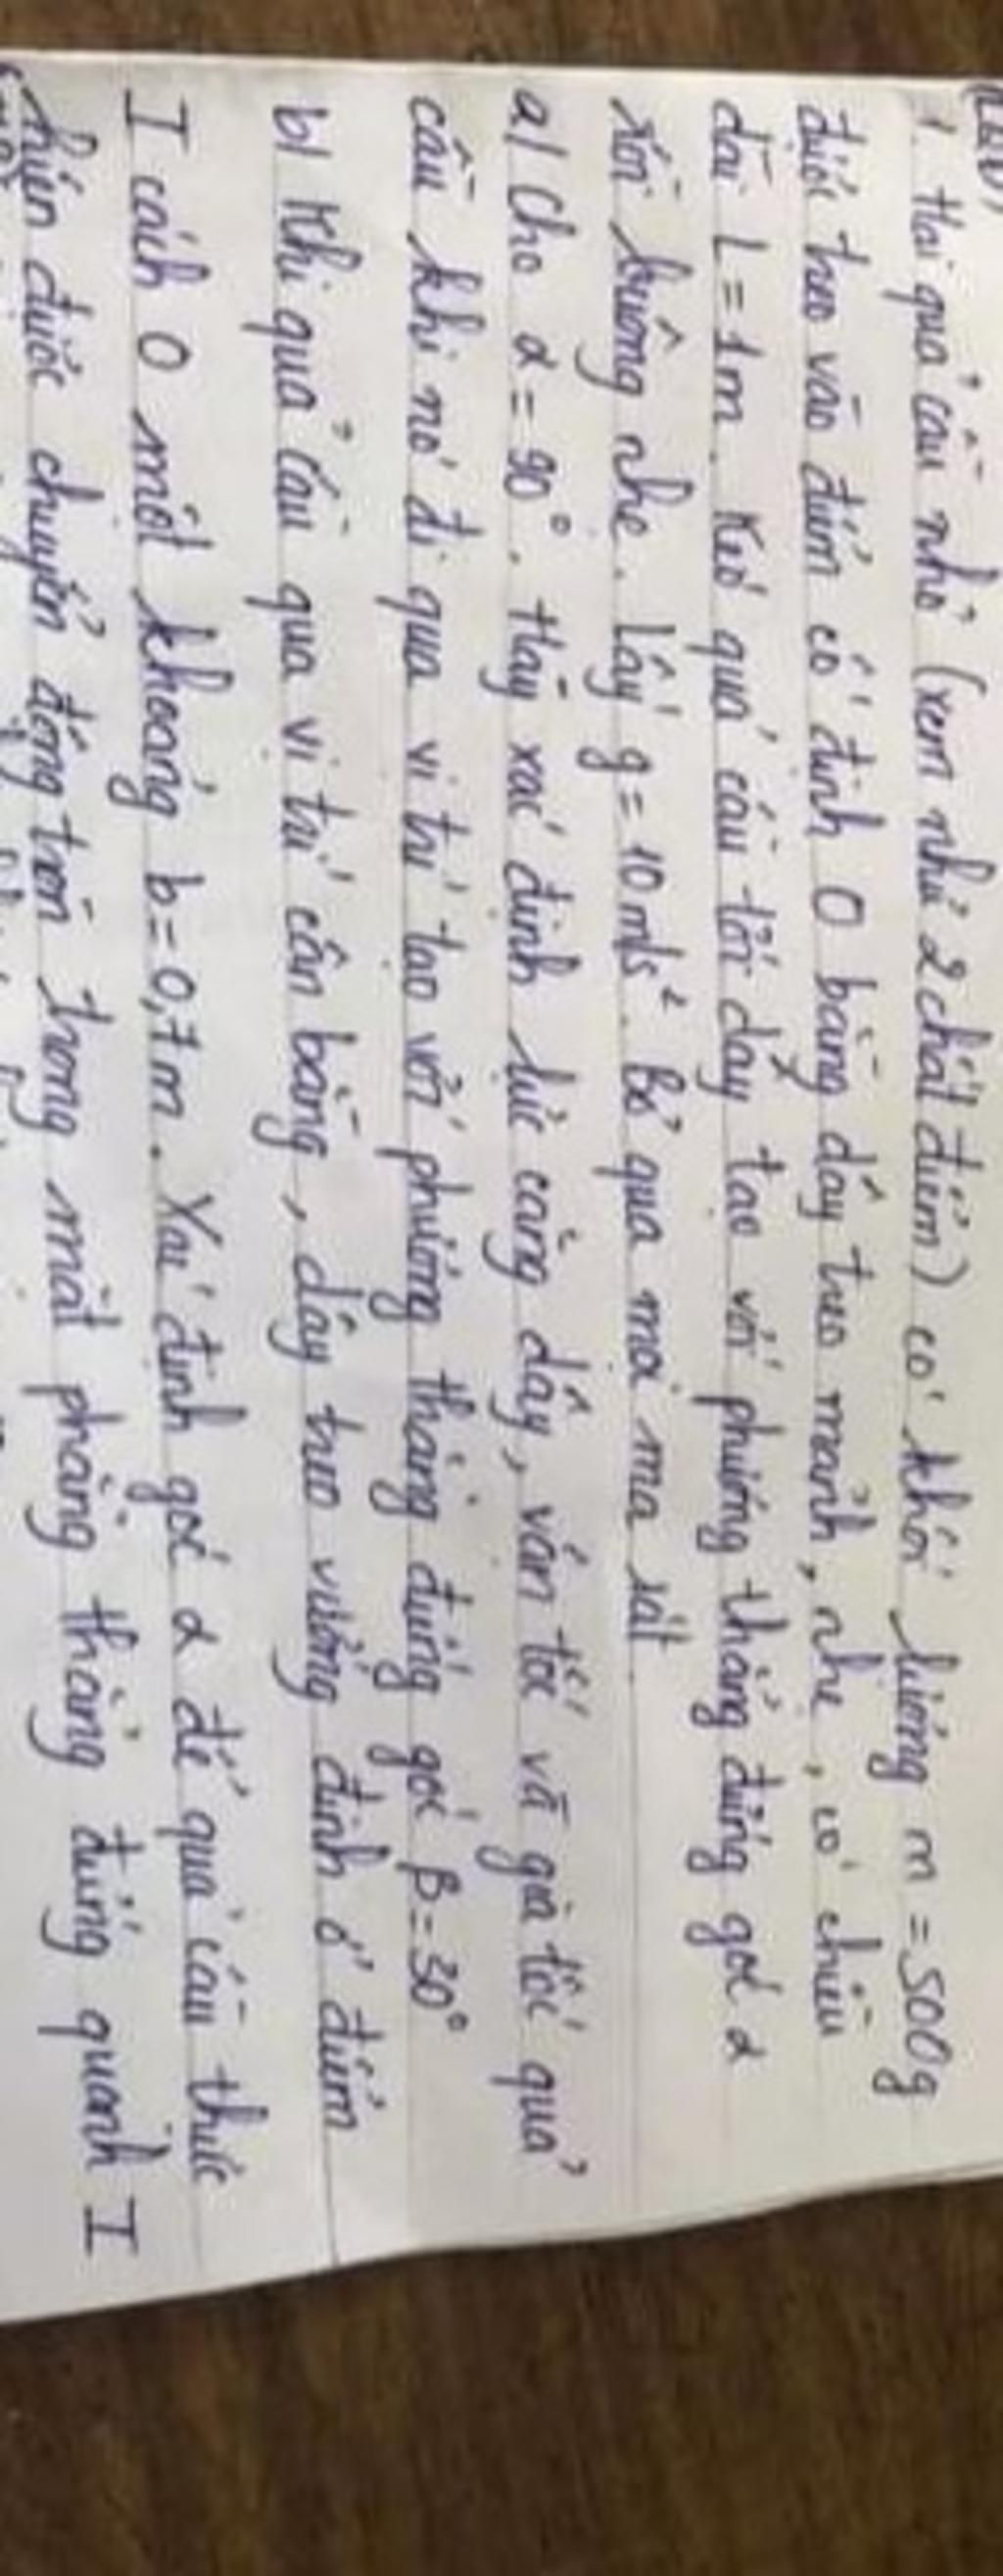 1. Hai quả cầu nhỏ (xem như 2 chất điểm) có khối lượng m = 500g
được treo vào điểm cố định O bằng dây treo mảnh, nhẹ, có chiều
dài L = 1m. Kéo quả cầu tới dây tạo với phương thẳng đứng góc α
rồi buông nhẹ. Lấy g = 10m/s². Bỏ qua mọi ma sát
a/ Cho α = 90°. Hãy xác định lực căng dây, vận tốc và gia tốc quả
cầu khi nó đi qua vị trí tạo với phương thẳng đứng góc β = 30°
b/ Khi quả cầu qua vị trí cân bằng, dây treo vướng đinh ở điểm
I cách O một khoảng b = 0,7m. Xác định góc α để quả cầu thực
hiện được chuyển động tròn trong mặt phẳng thẳng đứng quanh I